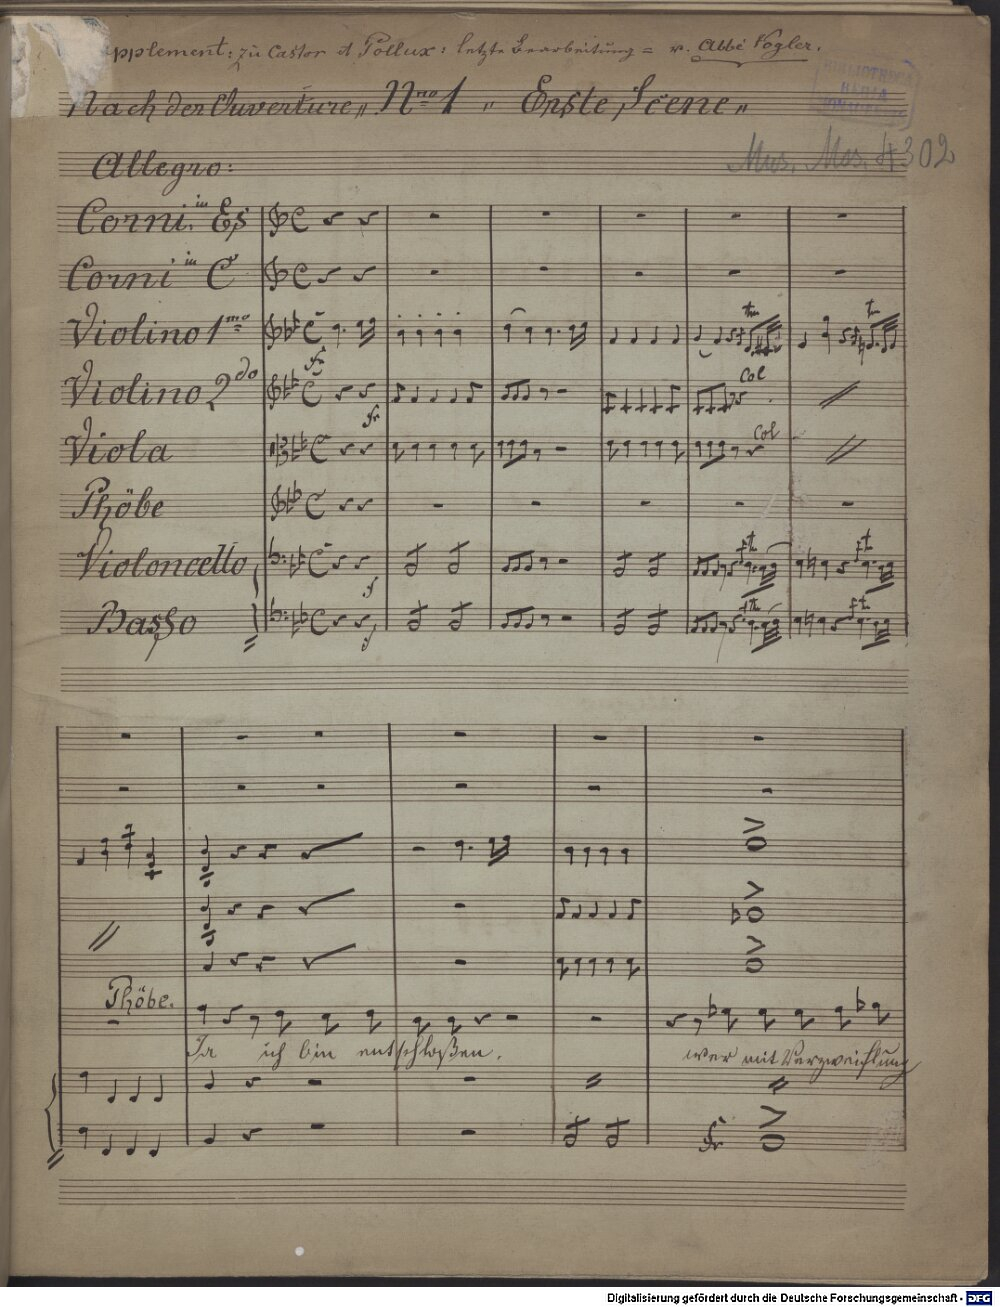 pplement: zu Castor et Pollux: letzte Bearbeitung = v. Abbé Vogler.
BIBLIOTHECA
REGIA
MONACENSIS
Nach der Ouverture „ Nro 1 „ Erste Scene „
Mus. Mss. 4302
Allegro:
Corni. in Es
Corni in C
Violino 1mo
Violino 2do
Col
Viola
Col
Phöbe
Violoncello
Basso
Phöbe.
Ja ich bin entschloßen.
wer mit Verzweiflung
Digitalisierung gefördert durch die Deutsche Forschungsgemeinschaft - DFG